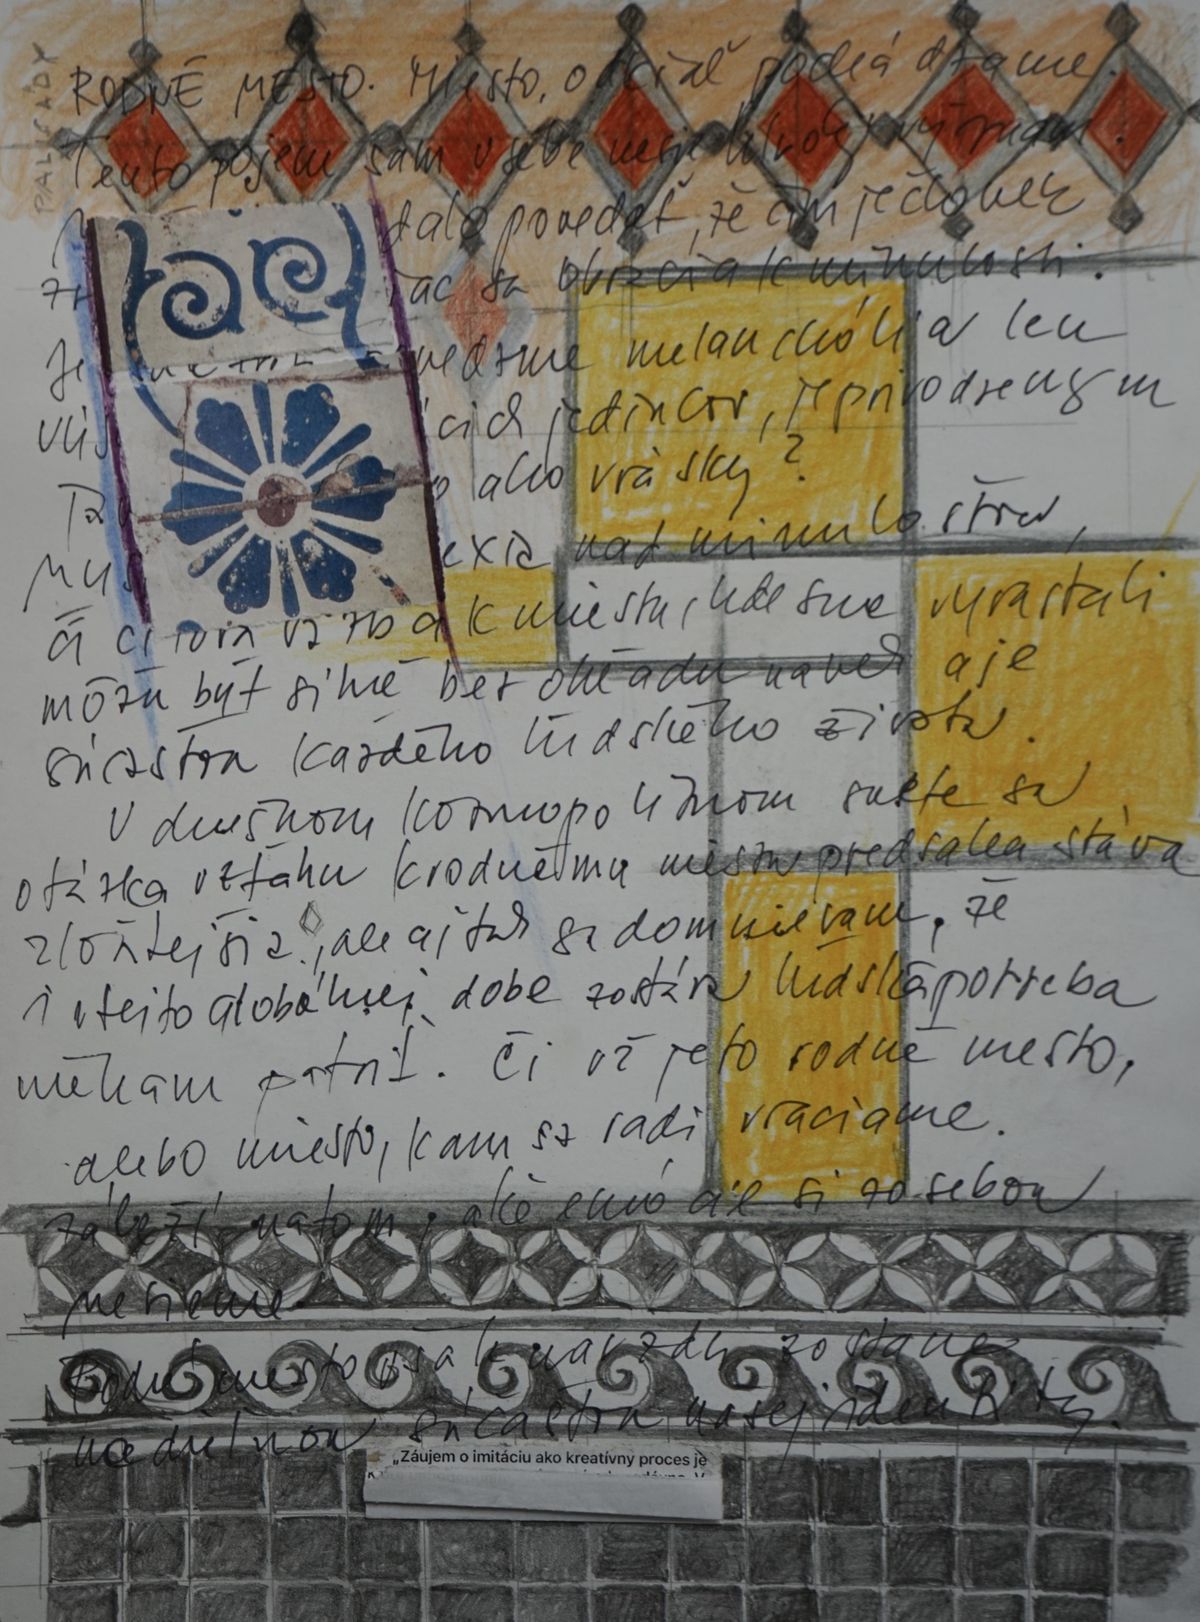 PALISÁDY
RODNÉ MESTO. Miesto, odkiaľ pochádzame.
Tento pojem sám v sebe nesie význam.
dalo povedať, že čím je človek
sa obracia k minulosti.
Je melanchólia len
jedincov, je prirodzeným
ako vrásky?
nad minulosťou,
či citová väzba k miestu, kde sme vyrastali
môžu byť silné bez ohľadu na vek a je
súčasťou každého ľudského života.
V dnešnom kozmopolitnom svete sa
otázka vzťahu k rodnému mestu predsalen stáva
zložitejšia, ale aj tak sa domnievam, že
i v tejto globálnej dobe zostáva ľudská potreba
niekam patriť. Či už je to rodné mesto,
alebo miesto, kam sa radi vraciame.
záleží na tom, aké si zo sebou
nesieme.
Rodné mesto však navždy zostane
súčasťou našej identity.
„Záujem o imitáciu ako kreatívny proces je